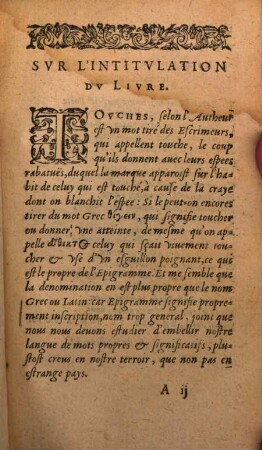 SVR L'INTITVLATION
DV LIVRE.
TOVCHES, selon l'Autheur
est vn mot tiré des Escrimeurs,
qui appellent touche, le coup
qu'ils donnent auec leurs espees
rabatuës, duquel la marque apparoist sur l'ha-
bit de celuy qui est touché, à cause de la craye
dont on blanchit l'espee: Si le peut-on encores
tirer du mot Grec θίγειν, qui signifie toucher
ou donner vne atteinte, de mesme qu'on ap-
pelle celuy qui sçait viuement tou-
cher & vse d'vn esguillon poignant, ce qui
est le propre de l'Epigramme. Et me semble que
la denomination en est plus propre que le nom
Grec ou Latin: car Epigramme signifie propre-
ment inscription, nom trop general, joint que
nous nous deuons estudier d'embellir nostre
langue de mots propres & significatifs, plu-
stost creus en nostre terroir, que non pas en
estrange pays.
A ij